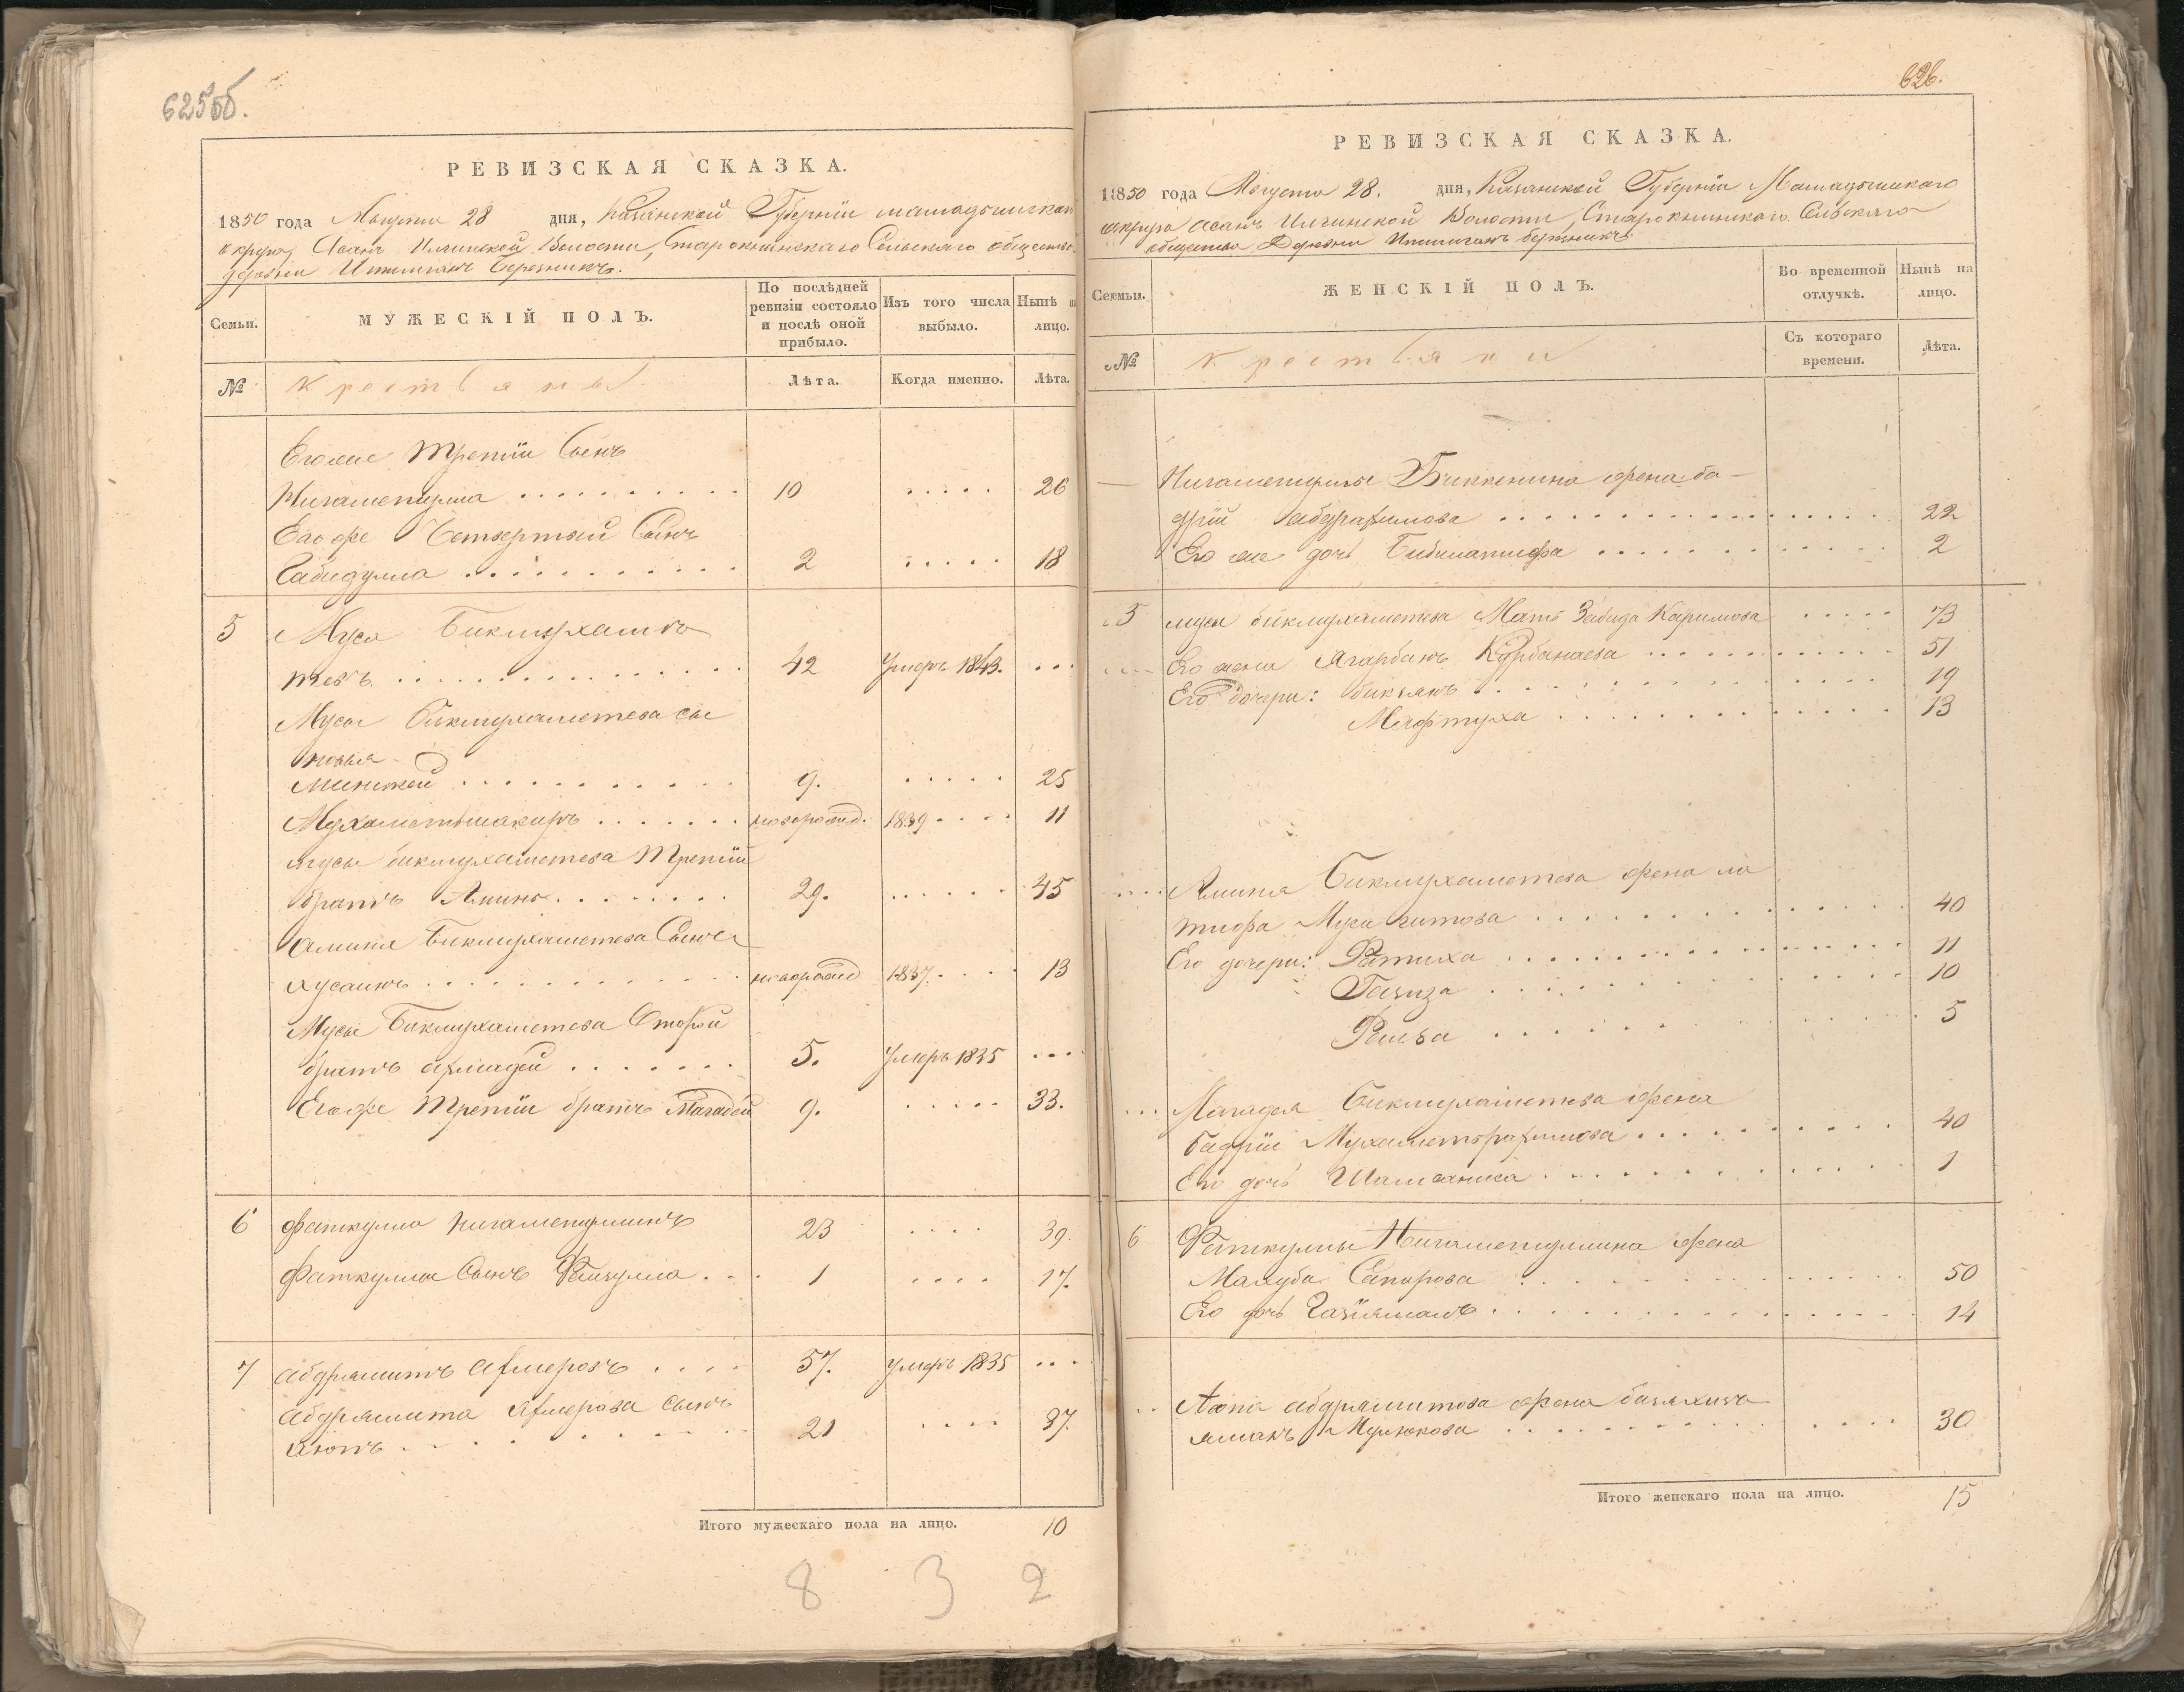 625об.
РЕВИЗСКАЯ СКАЗКА.
1850 года Августа 28 дня, Казанской Губернiи мамадышскаго
округа, Асанъ Илгинской Волости, Старокнинскаго Сельскаго общества
деревни Ишменевъ Березникъ.
Семьи.
МУЖЕСКIЙ ПОЛЪ.
По послѣдней ревизiи состояло и послѣ оной прибыло.
Изъ того числа выбыло.
Нынѣ на лицо.
№
крестьяны
Лѣта.
Когда именно.
Лѣта.
Его же Третiй Сынъ
Нигаметулла 10 26
Его же Четвертый Сынъ
Габидулла 2 18
5 Муса Бикмухаме
тевъ 42 Умеръ 1843.
Мусы Бикмухаметева сы
новья
Минкей 9. 25
Мухаметьшакиръ новорожд. 1839 11
мусы бикмухаметева Третiй
братъ Аминъ 29. 45
Амина Бикмухаметева Сынъ
Хусаинъ новорожд 1837. 13
Мусы Бикмухаметева Второй
братъ Ахмадей 5. Умеръ 1835
Его же Третiй братъ Магадей 9. 33.
6 Фаткулла Нигаметуллинъ 23 39.
Фаткуллы Сынъ Фаизулла 1 17.
7 Абдрямитъ Ахмеровъ 57. умеръ 1835
Абдрямита Ахмерова сынъ
Аюпъ 21 37.
Итого мужескаго пола на лицо. 10
8 3 2
626.
РЕВИЗСКАЯ СКАЗКА.
1850 года Августа 28. дня, Казанской Губернiи Мамадышскаго
округа Асанъ Илгинской Волости, Старокнинскаго Сельскаго
общества Деревни Ишменевъ березникъ
Семьи.
ЖЕНСКIЙ ПОЛЪ.
Во временной отлучкѣ.
Нынѣ на лицо.
№
крестьяни
Съ котораго времени.
Лѣта.
Нигаметуллы Биккенина жена ба
дрiй Абдрахимова 22
Его же дочь Бибилатифа 2
5 мусы бикмухаметева Мать Забида Каримова 73
Его жена Ягарбанъ Курбанаева 51
Его дочери: бикзянъ 19
Мафтуха 13
Амина Бикмухаметева жена ла
тифа Мусагитова 40
Его дочери: Фатиха 11
Газиза 10
Фаиза 5
Магадея Бикмухаметева жена
бадрiи Мухаметьрахимова 40
Его дочь Шамсениса 1
6 Фаткуллы Нигаметуллина жена
Махуба Сапирова 50
Его дочь Газiямалъ 14
Аюпа абдрямитова жена базяхизъ
ямалъ Мулюкова 30
Итого женскаго пола на лицо. 15